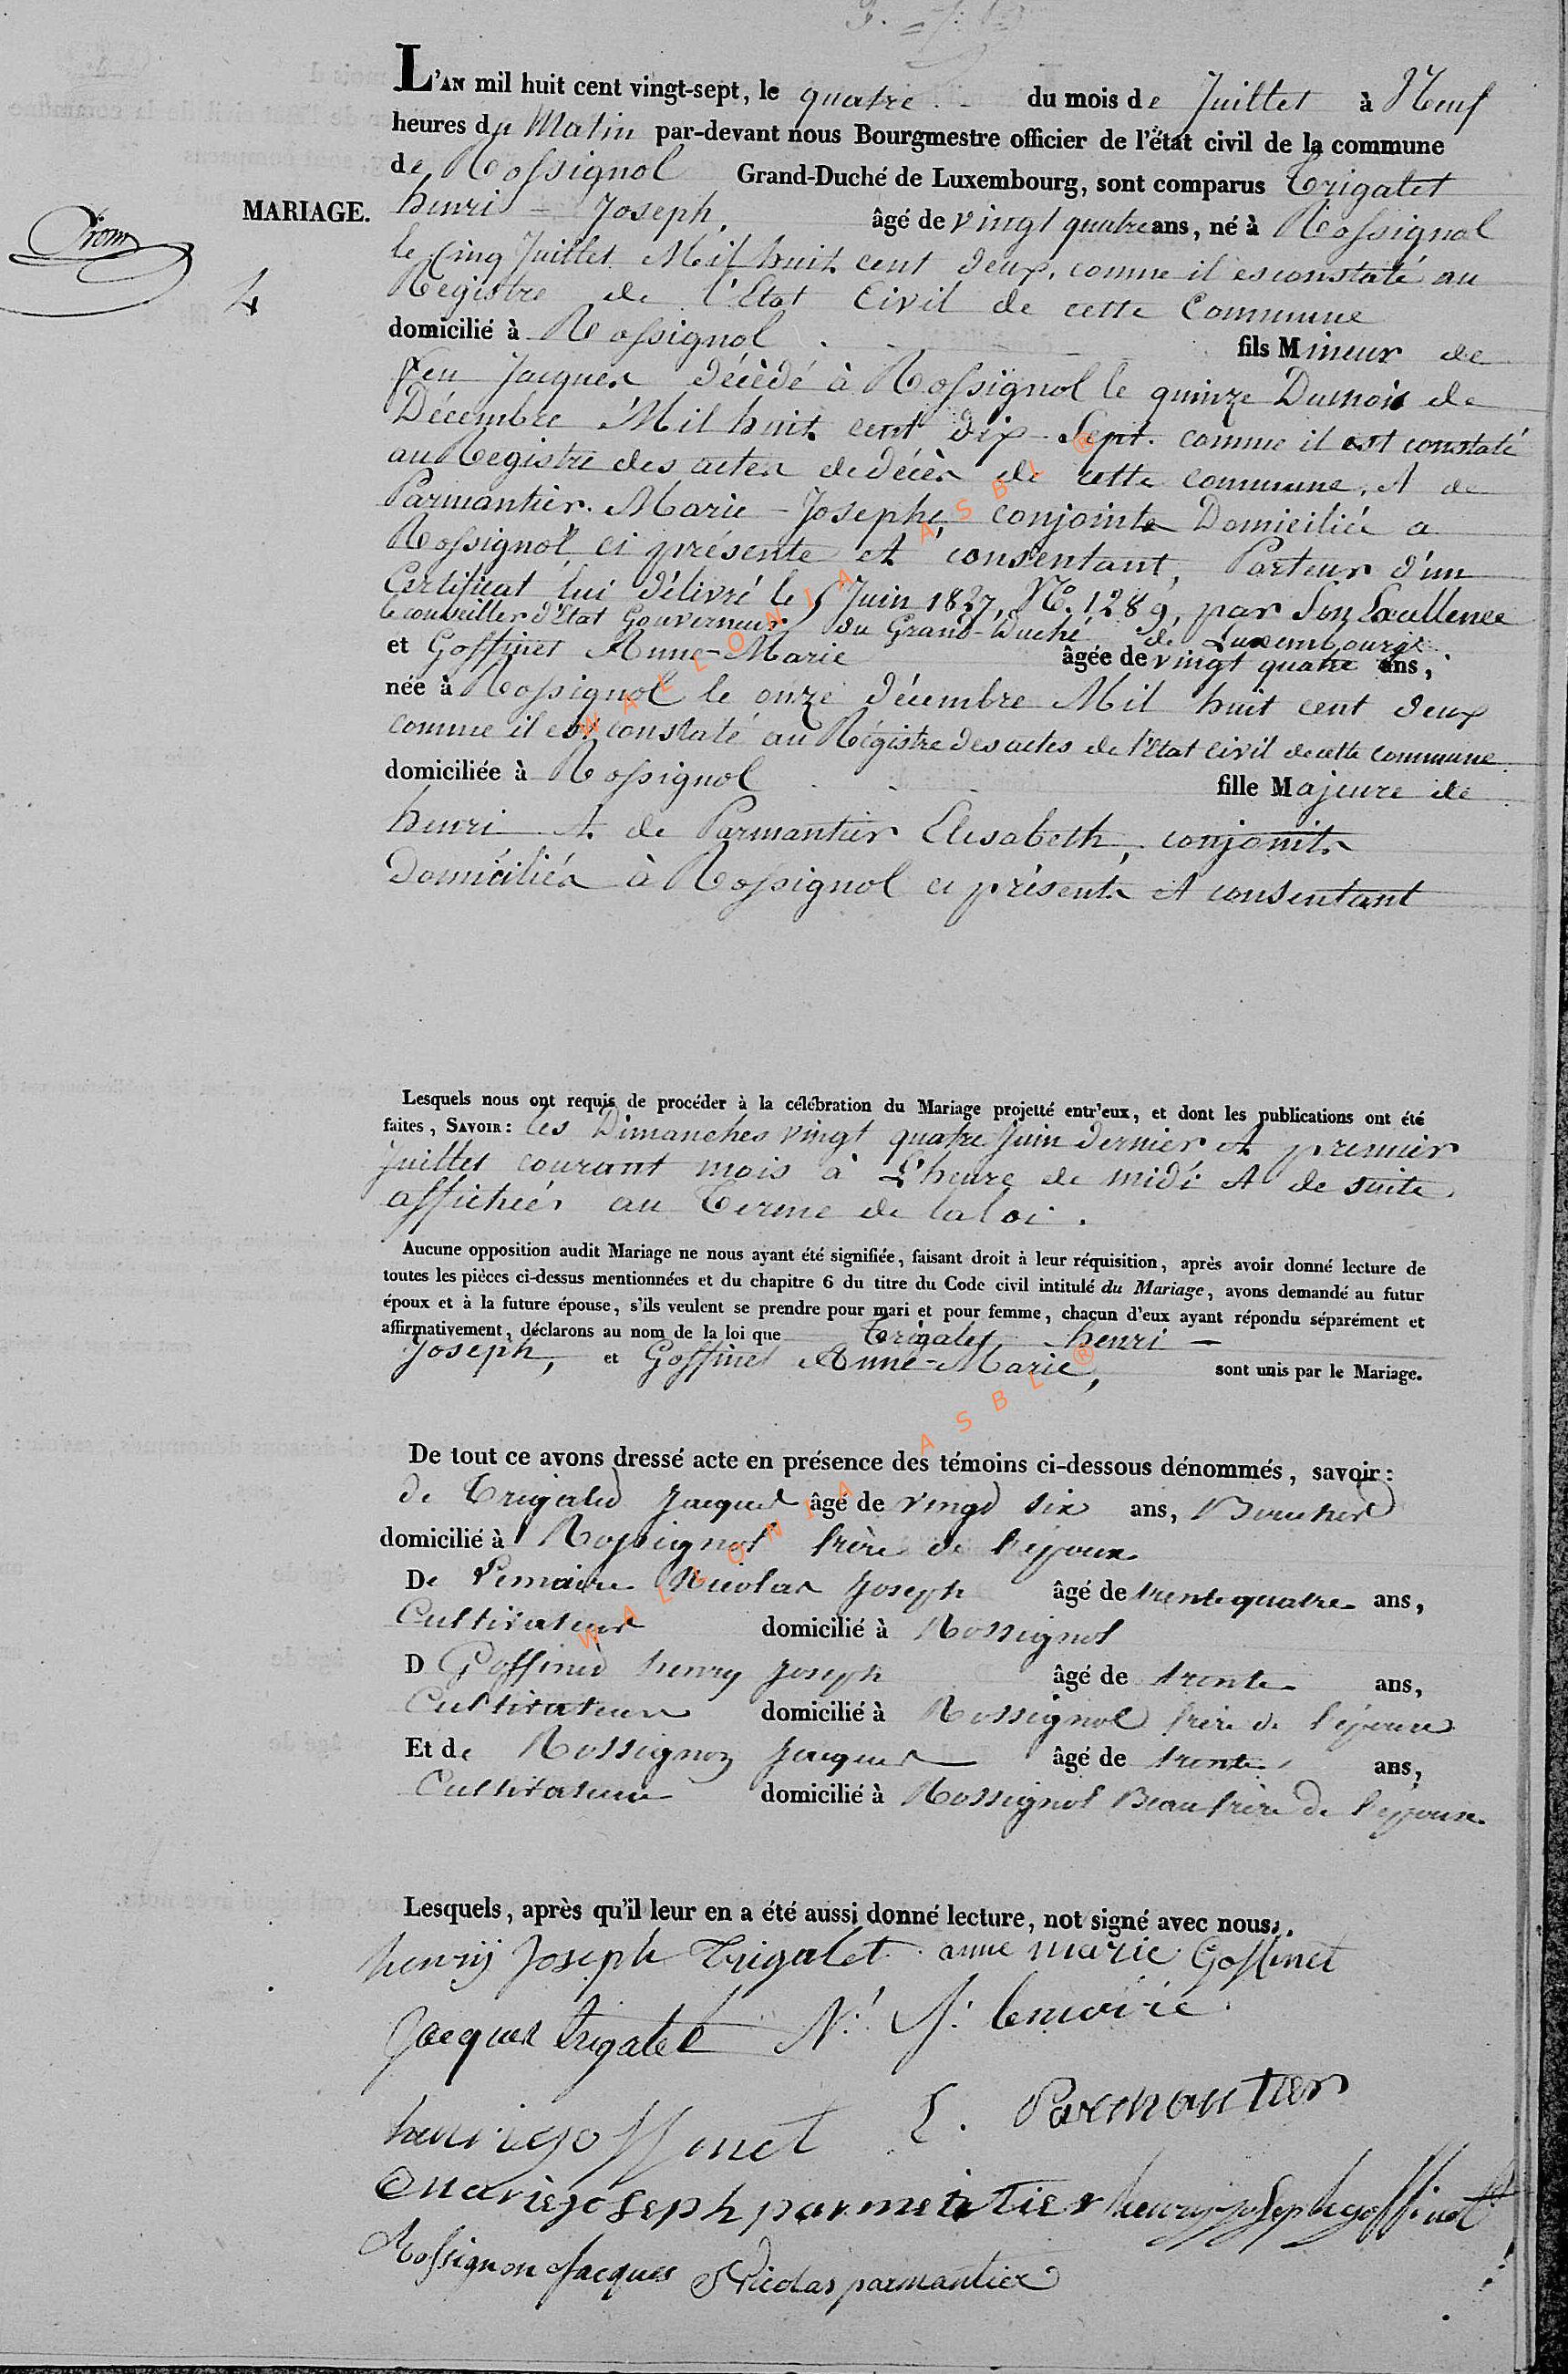 L'AN mil huit cent vingt-sept, le quatre du mois de Juillet à Neuf
heures du Matin par-devant nous Bourgmestre officier de l'état civil de la commune
de Rossignol Grand-Duché de Luxembourg, sont comparus Trigalet
MARIAGE. henri - Joseph, âgé de vingt quatre ans, né à Rossignol
le Cinq Juillet Mil huit cent deux, comme il es constaté au
4
Régistre de l'Etat Civil de cette Commune
domicilié à Rossignol fils Mineur de
feu Jacques décédé à Rossignol le quinze Du mois de
Décembre Mil huit cent dix-Sept. comme il est constaté
au Régistre des actes de décès de cette commune, et de
Parmantier Marie-Josephe, conjoints Domiciliée a
Rossignol ci présente et consentant, Porteur d'un
Certificat lui délivré le 5 Juin 1827, N.º 1289, par Son Excellence
le conseiller d'Etat Gouverneur du Grand-Duché de Luxembourg
et Goffinet Anne-Marie âgée de vingt quatre ans,
née à Rossignol le onze décembre Mil huit cent deux
comme il est constaté au Régistre des actes de l'Etat civil de cette commune
domiciliée à Rossignol fille Majeure de
henri et de Parmantier Elisabeth, conjoints
Domiciliés à Rossignol ci présents et consentant
Lesquels nous ont requis de procéder à la célébration du Mariage projetté entr'eux, et dont les publications ont été
faites, SAVOIR: les Dimanches vingt quatre Juin dernier et premier
Juillet courant mois à L'heure de midi et de suite
affichées au Terme de la loi.
Aucune opposition audit Mariage ne nous ayant été signifiée, faisant droit à leur réquisition, après avoir donné lecture de
toutes les pièces ci-dessus mentionnées et du chapitre 6 du titre du Code civil intitulé du Mariage, avons demandé au futur
époux et à la future épouse, s'ils veulent se prendre pour mari et pour femme, chacun d'eux ayant répondu séparément et
affirmativement, déclarons au nom de la loi que Trigalet henri -
Joseph, et Goffinet Anne-Marie, sont unis par le Mariage.
De tout ce avons dressé acte en présence des témoins ci-dessous dénommés, savoir:
de Trigalet Jacques âgé de vingt six ans, Boucher
domicilié à Rossignol frère de l'époux
De Lemaire Nicolas Joseph âgé de trente quatre ans,
Cultivateur domicilié à Rossignol
D Goffinet henry Joseph âgé de trente ans,
Cultivateur domicilié à Rossignol frère de l'épouse
Et de Rossignon Jacques âgé de trente ans,
Cultivateur domicilié à Rossignol Beau frère de l'épouse
Lesquels, après qu'il leur en a été aussi donné lecture, not signé avec nous.
henrij Joseph Trigalet anne marie Goffinet
Jacques trigalet N. J. lemaire
henri goffinet E. Parmantier
marie joseph parmentier henry joseph goffinet
Rossignon Jacques Nicolas parmantier
WALLONIA ASBL ®
WALLONIA ASBL ®